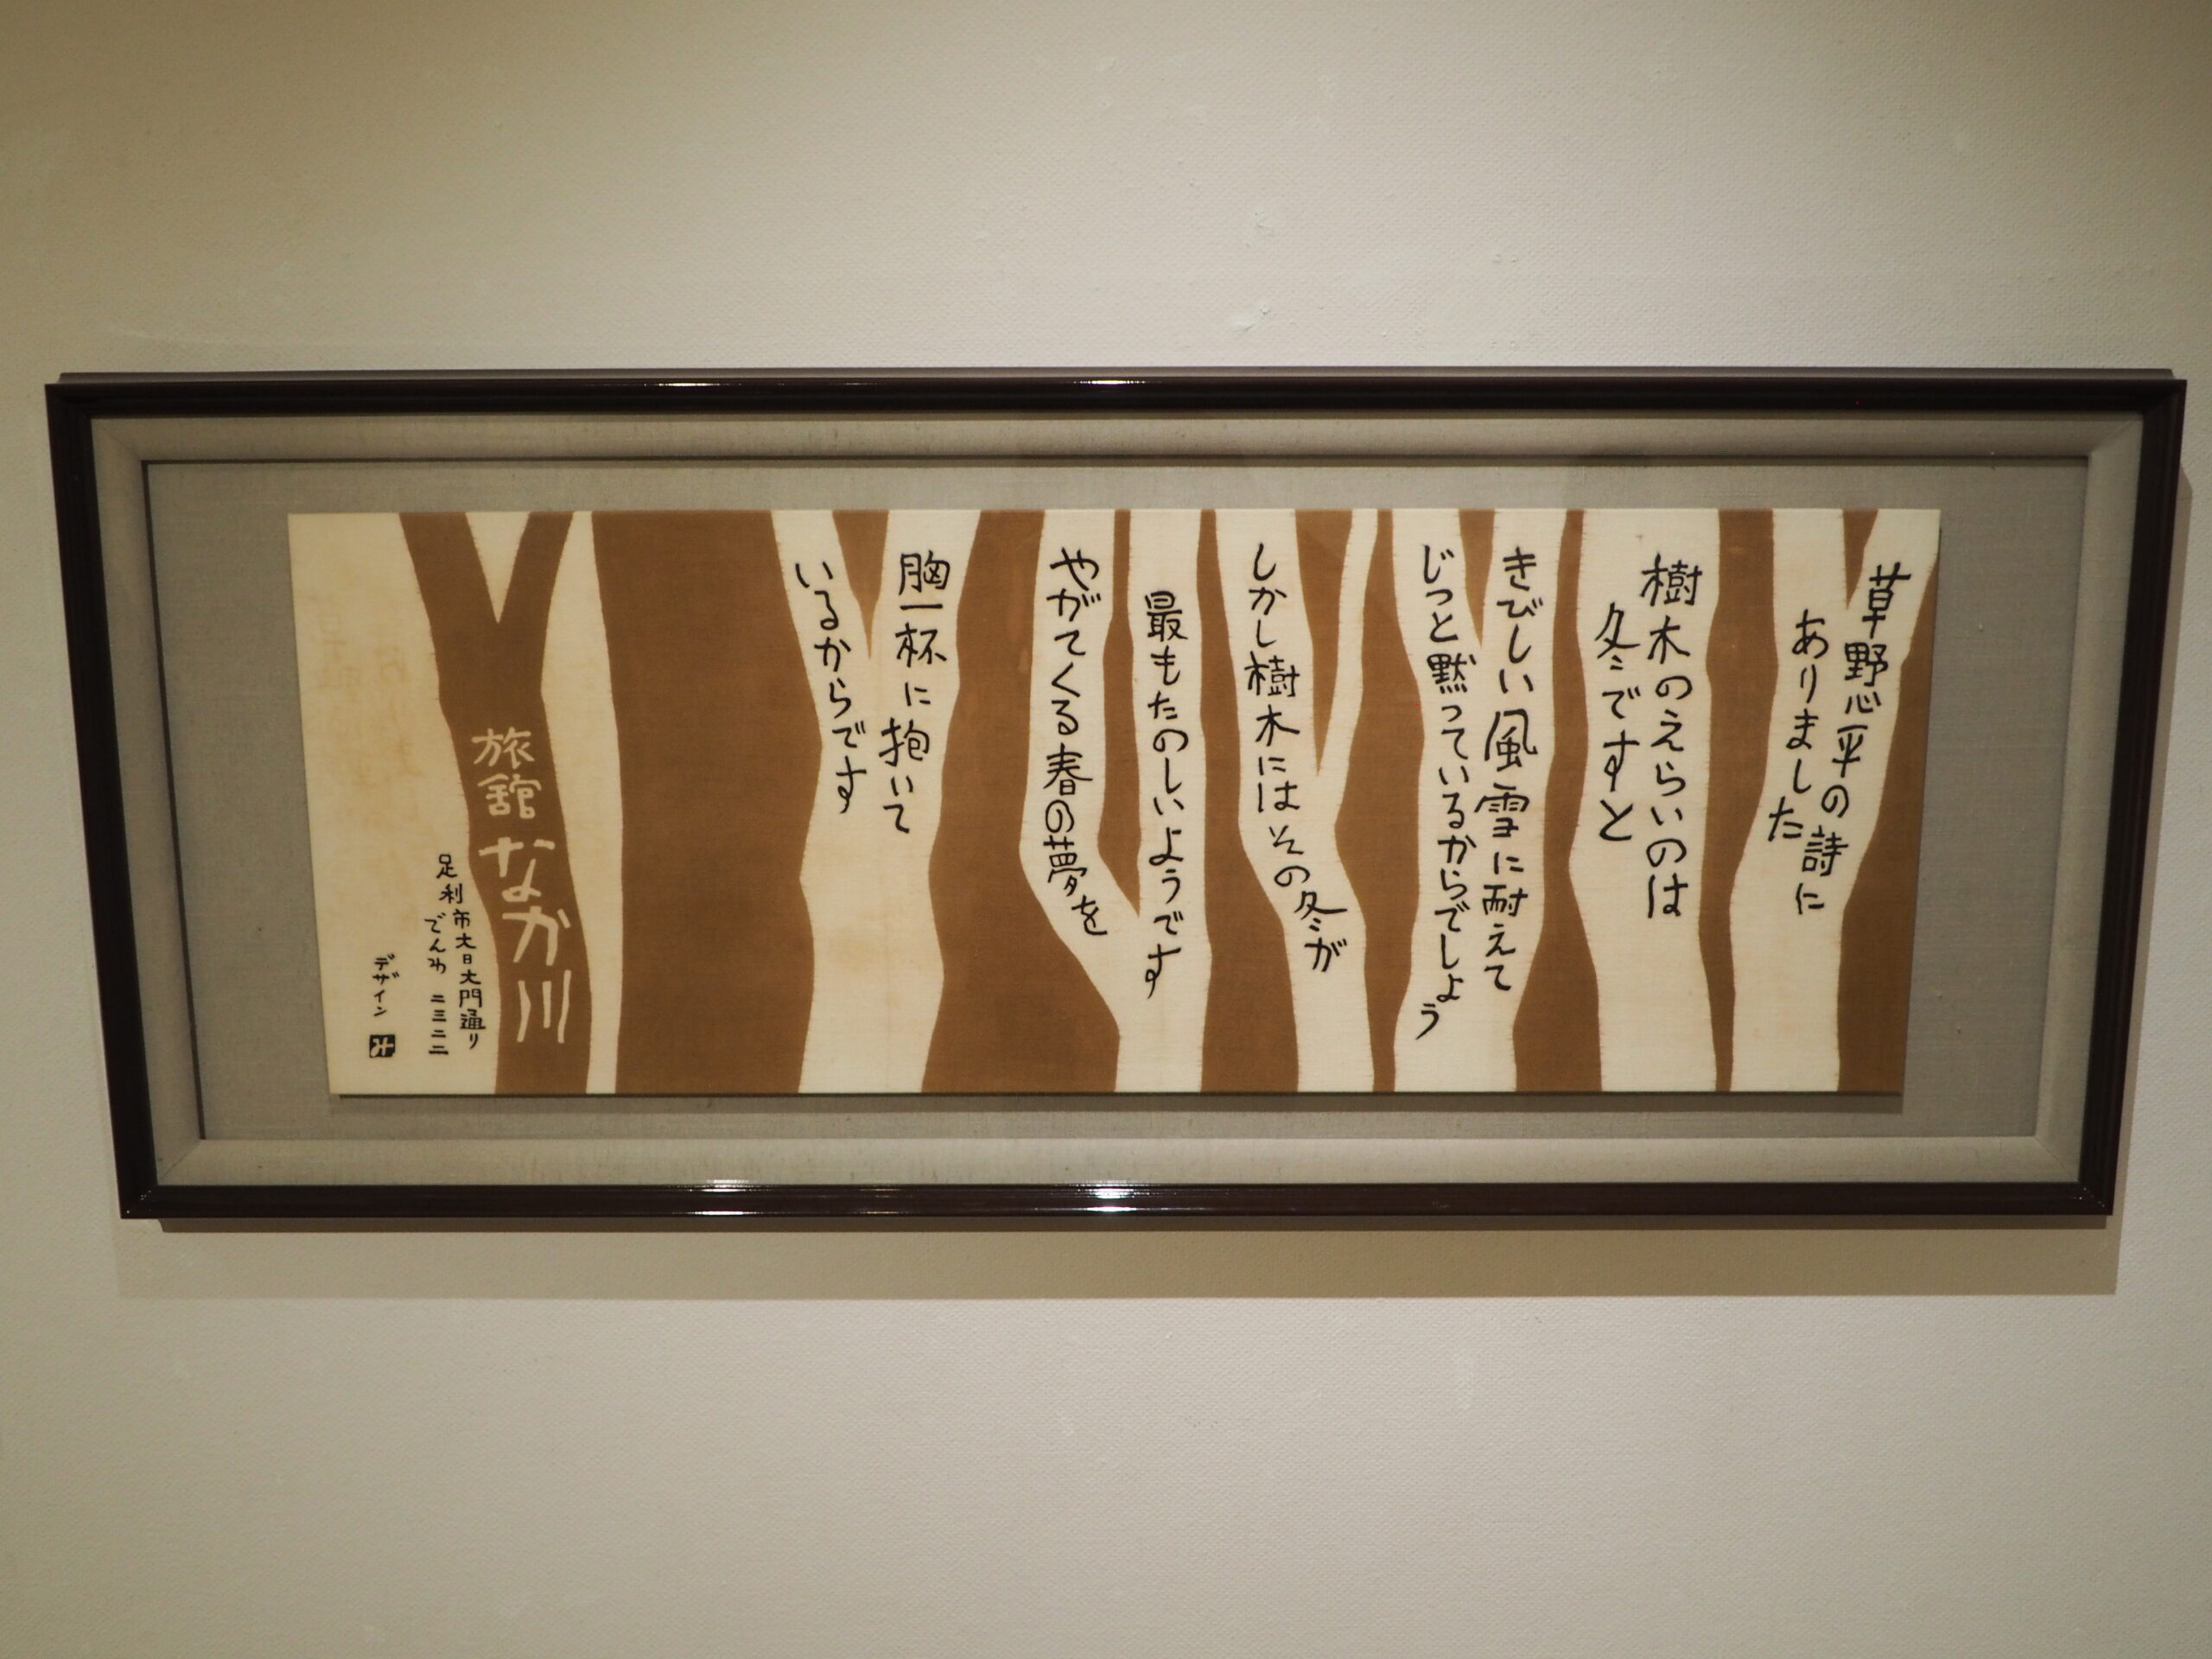 草野心平の詩に
ありました
樹木のえらいのは
冬ですと
きびしい風雪に耐えて
じっと黙っているからでしょう
しかし樹木にはその冬が
最もたのしいようです
やがてくる春の夢を
胸一杯に抱いて
いるからです
旅舘 なか川
足利市大日大門通り
でんわ 二三二二
デザイン み